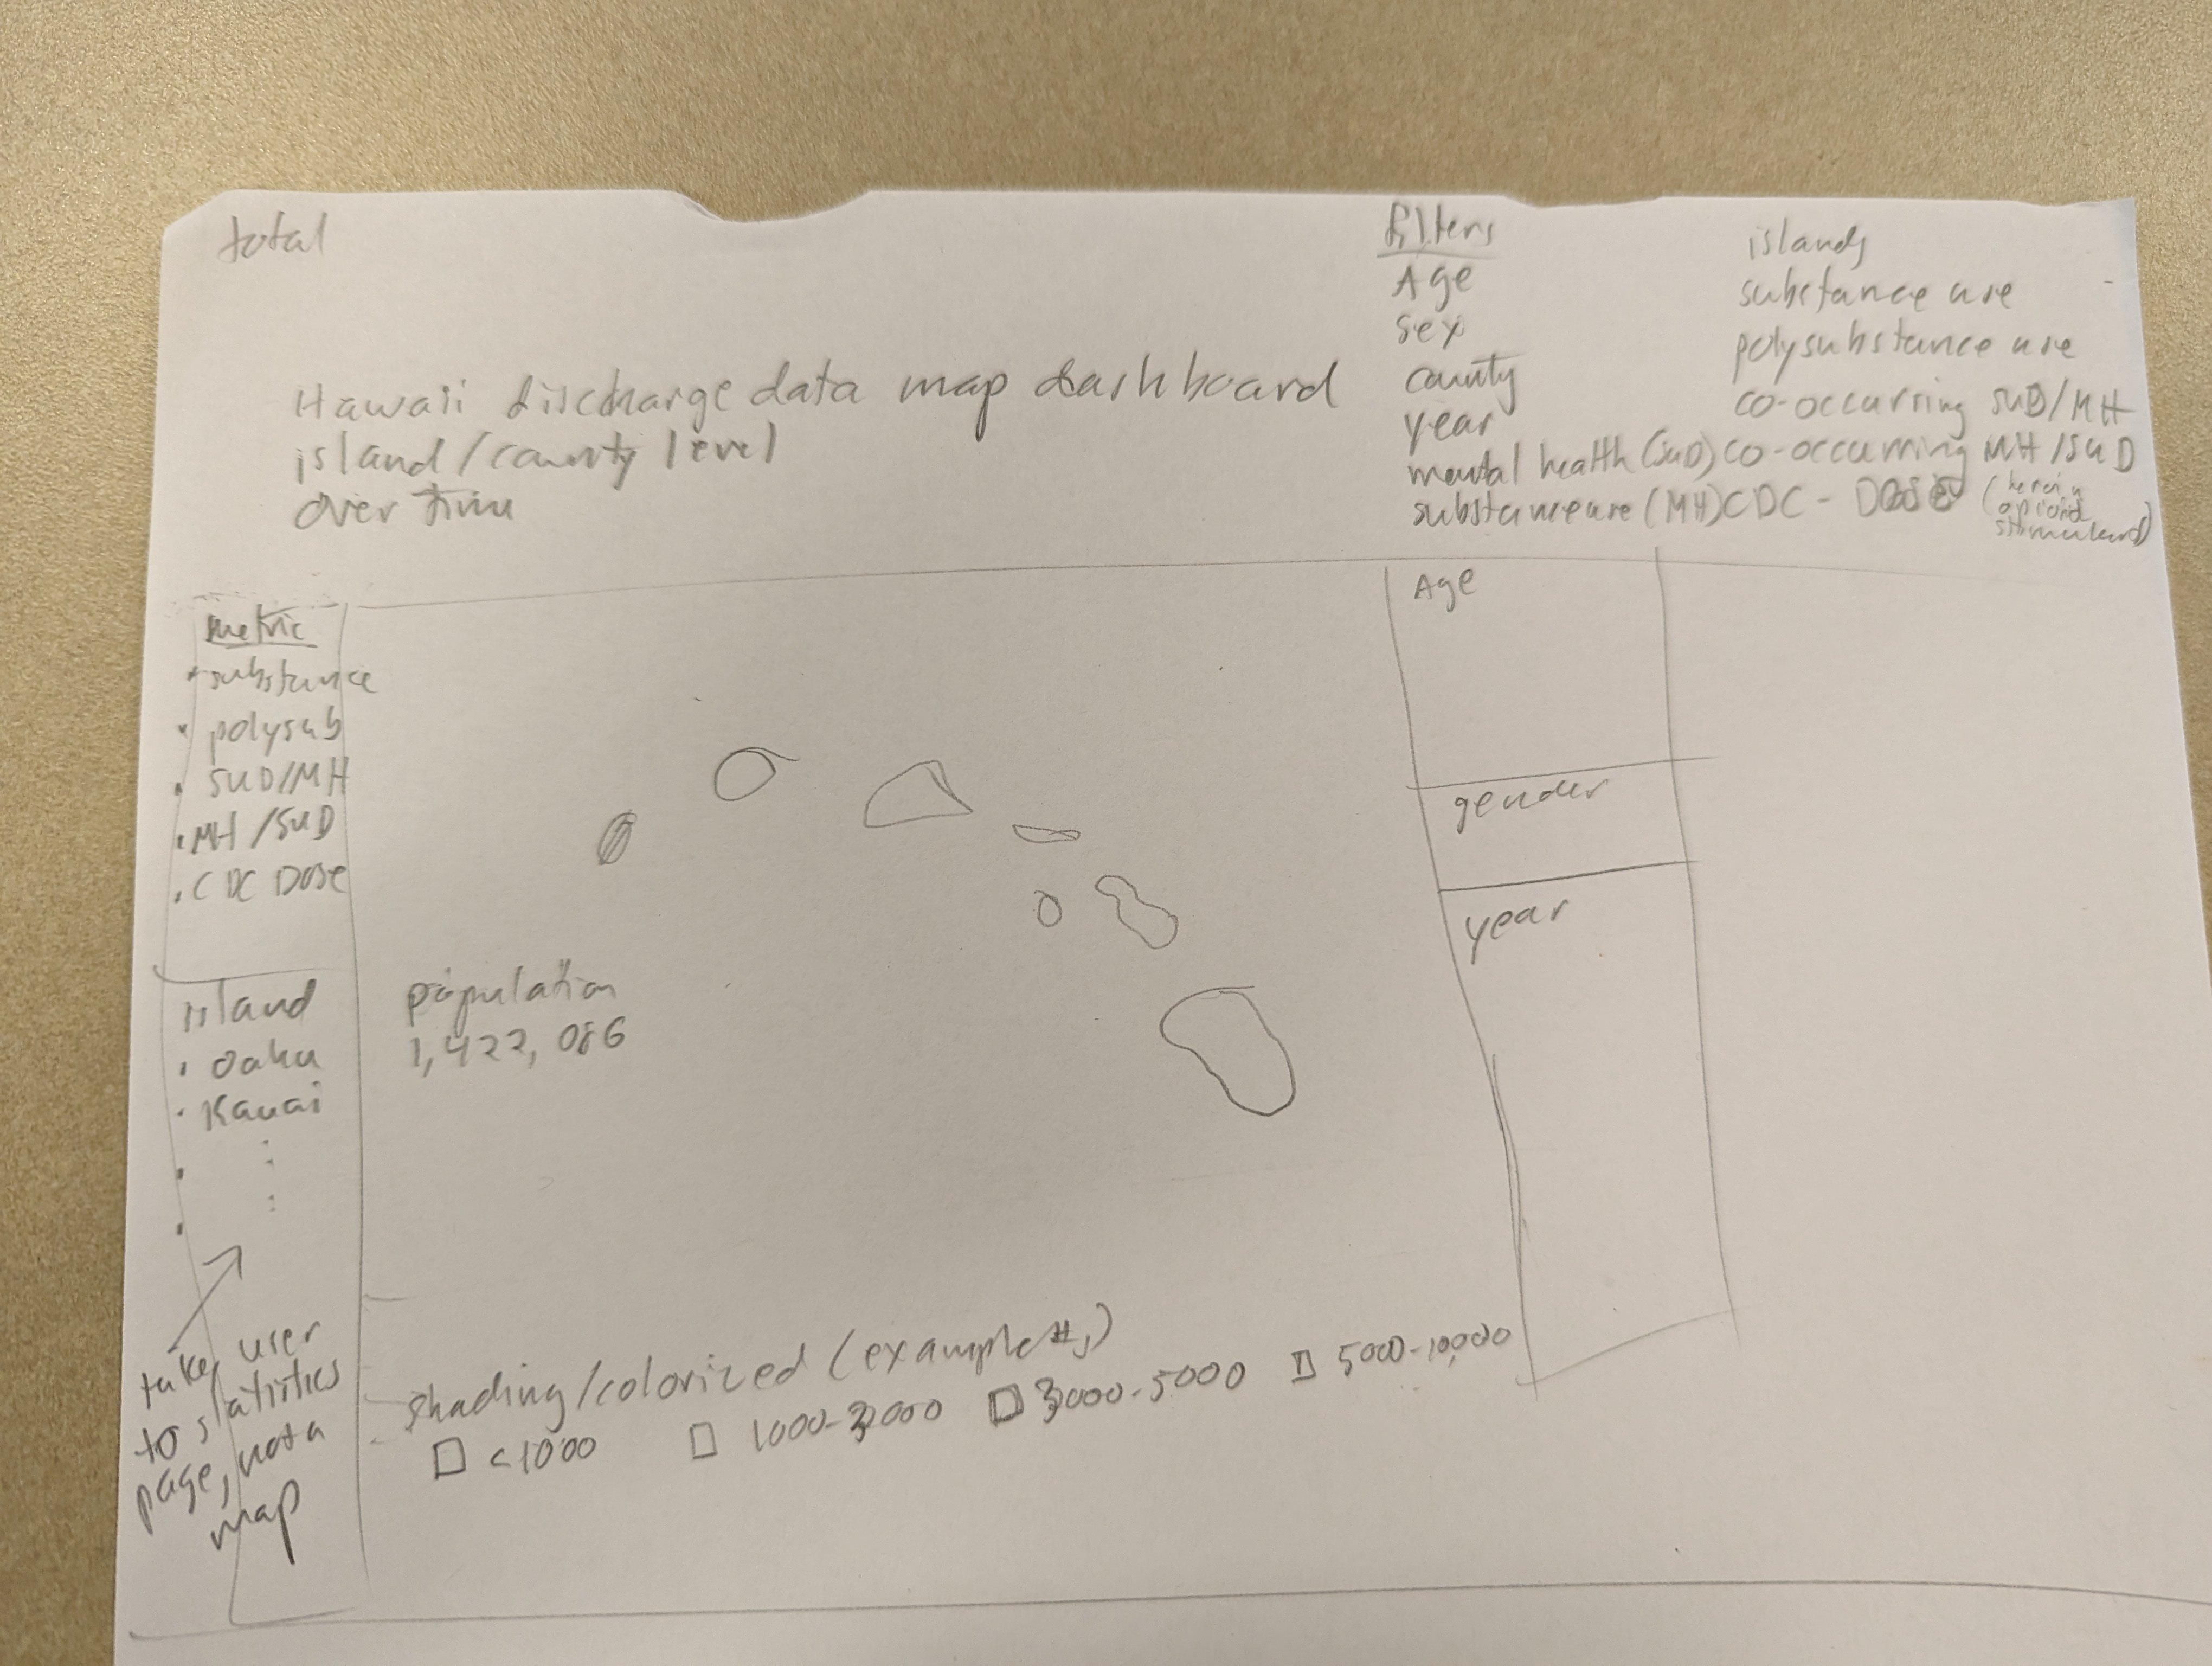 total
Hawaii discharge data map dashboard
island/county level
over time
filters
Age
sex
county
year
mental health (SUD)
substance use (MH)
islands
substance use
polysubstance use
co-occurring SUD/MH
co-occurring MH/SUD
CDC - DOSE (heroin
opioid
stimulant)
metric
• substance
• polysub
• SUD/MH
• MH/SUD
• CDC DOSE
island
• Oahu
• Kauai
takes user
to statistics
page, not a
map
population
1,422,086
Age
gender
year
shading/colorized (example #s)
<1000
1000-3000
3000-5000
5000-10,000